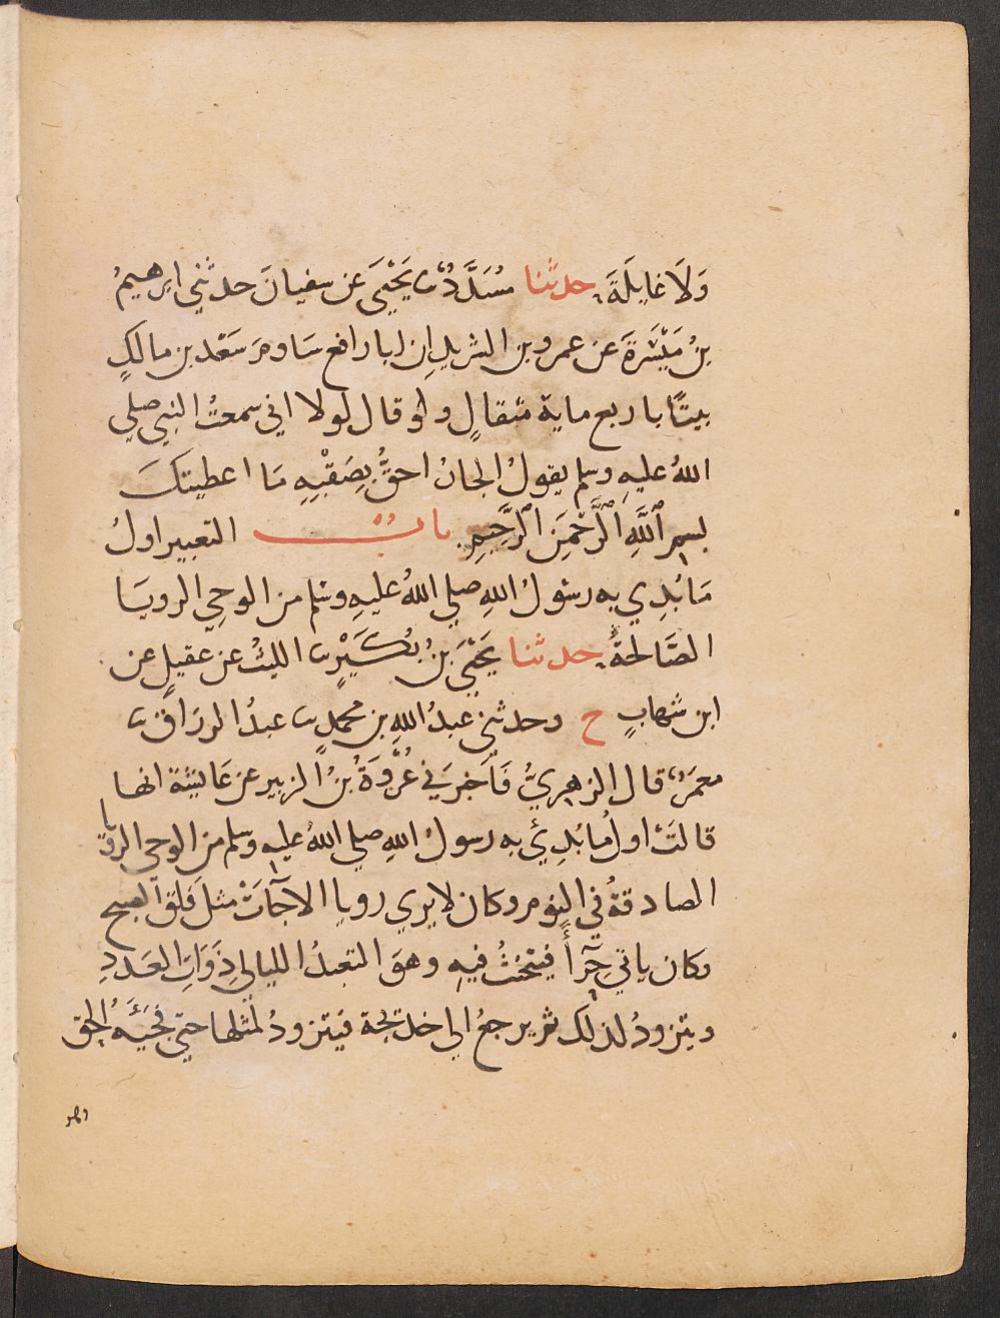 وَلَا غايلَةَ، حدثنا مُسَدَّدٌ ثنا يَحْيَى عن سفيانَ حدثني ابرهيمُ
بنُ مَيْسَرَةَ عن عمرو بن الشريد ان ابا رافع سَاومَ سَعْد بن مالكٍ
بيتًا باربع ماية مثقالٍ وقال لولا اني سمعتُ النبي صلي
اللهُ عليهِ وسلم يقولُ الجارُ احقُّ بِصَقْبِهِ مَا اعطيتكَ
بسم اللَّهِ الرَّحْمَنِ الرَّحِيمِ بابُ التعبير اولُ
مَا بُدِي به رسُولُ اللهِ صلي اللهُ عليهِ وسَلم من الوحيِ الرويَا
الصَّالحةُ، حدثنا يَحْيَى بنُ بُكَيْرٍ ثنا الليثُ عن عقيلٍ عن
ابن شهابٍ ح وحدثني عبدُ اللهِ بن محمدٍ ثنا عبدُ الرزاق ثنا
معمَرٌ قال الزهريُّ فَاَخبرَني عُرْوَةُ بنُ الزبير عن عَايشة انها
قالتَ اولُ مابُدِيَ به رسولُ اللهِ صلي اللهُ عليه وسلم من الوحي الرويا
الصادقةُ في النوم وكان لا يري رويا الا جَآتْ مثلَ فَلَق الصبح
وكان ياتي حِرَآءً فيتحنثُ فيهِ وهوَ التعبدُ الليالي ذَوَاتِ العَددِ
ويتزودُ لذلك ثم يرجعُ الي خديجة فيتزودُ لمثلها حتي فَجِئَهُ الحق
وهو